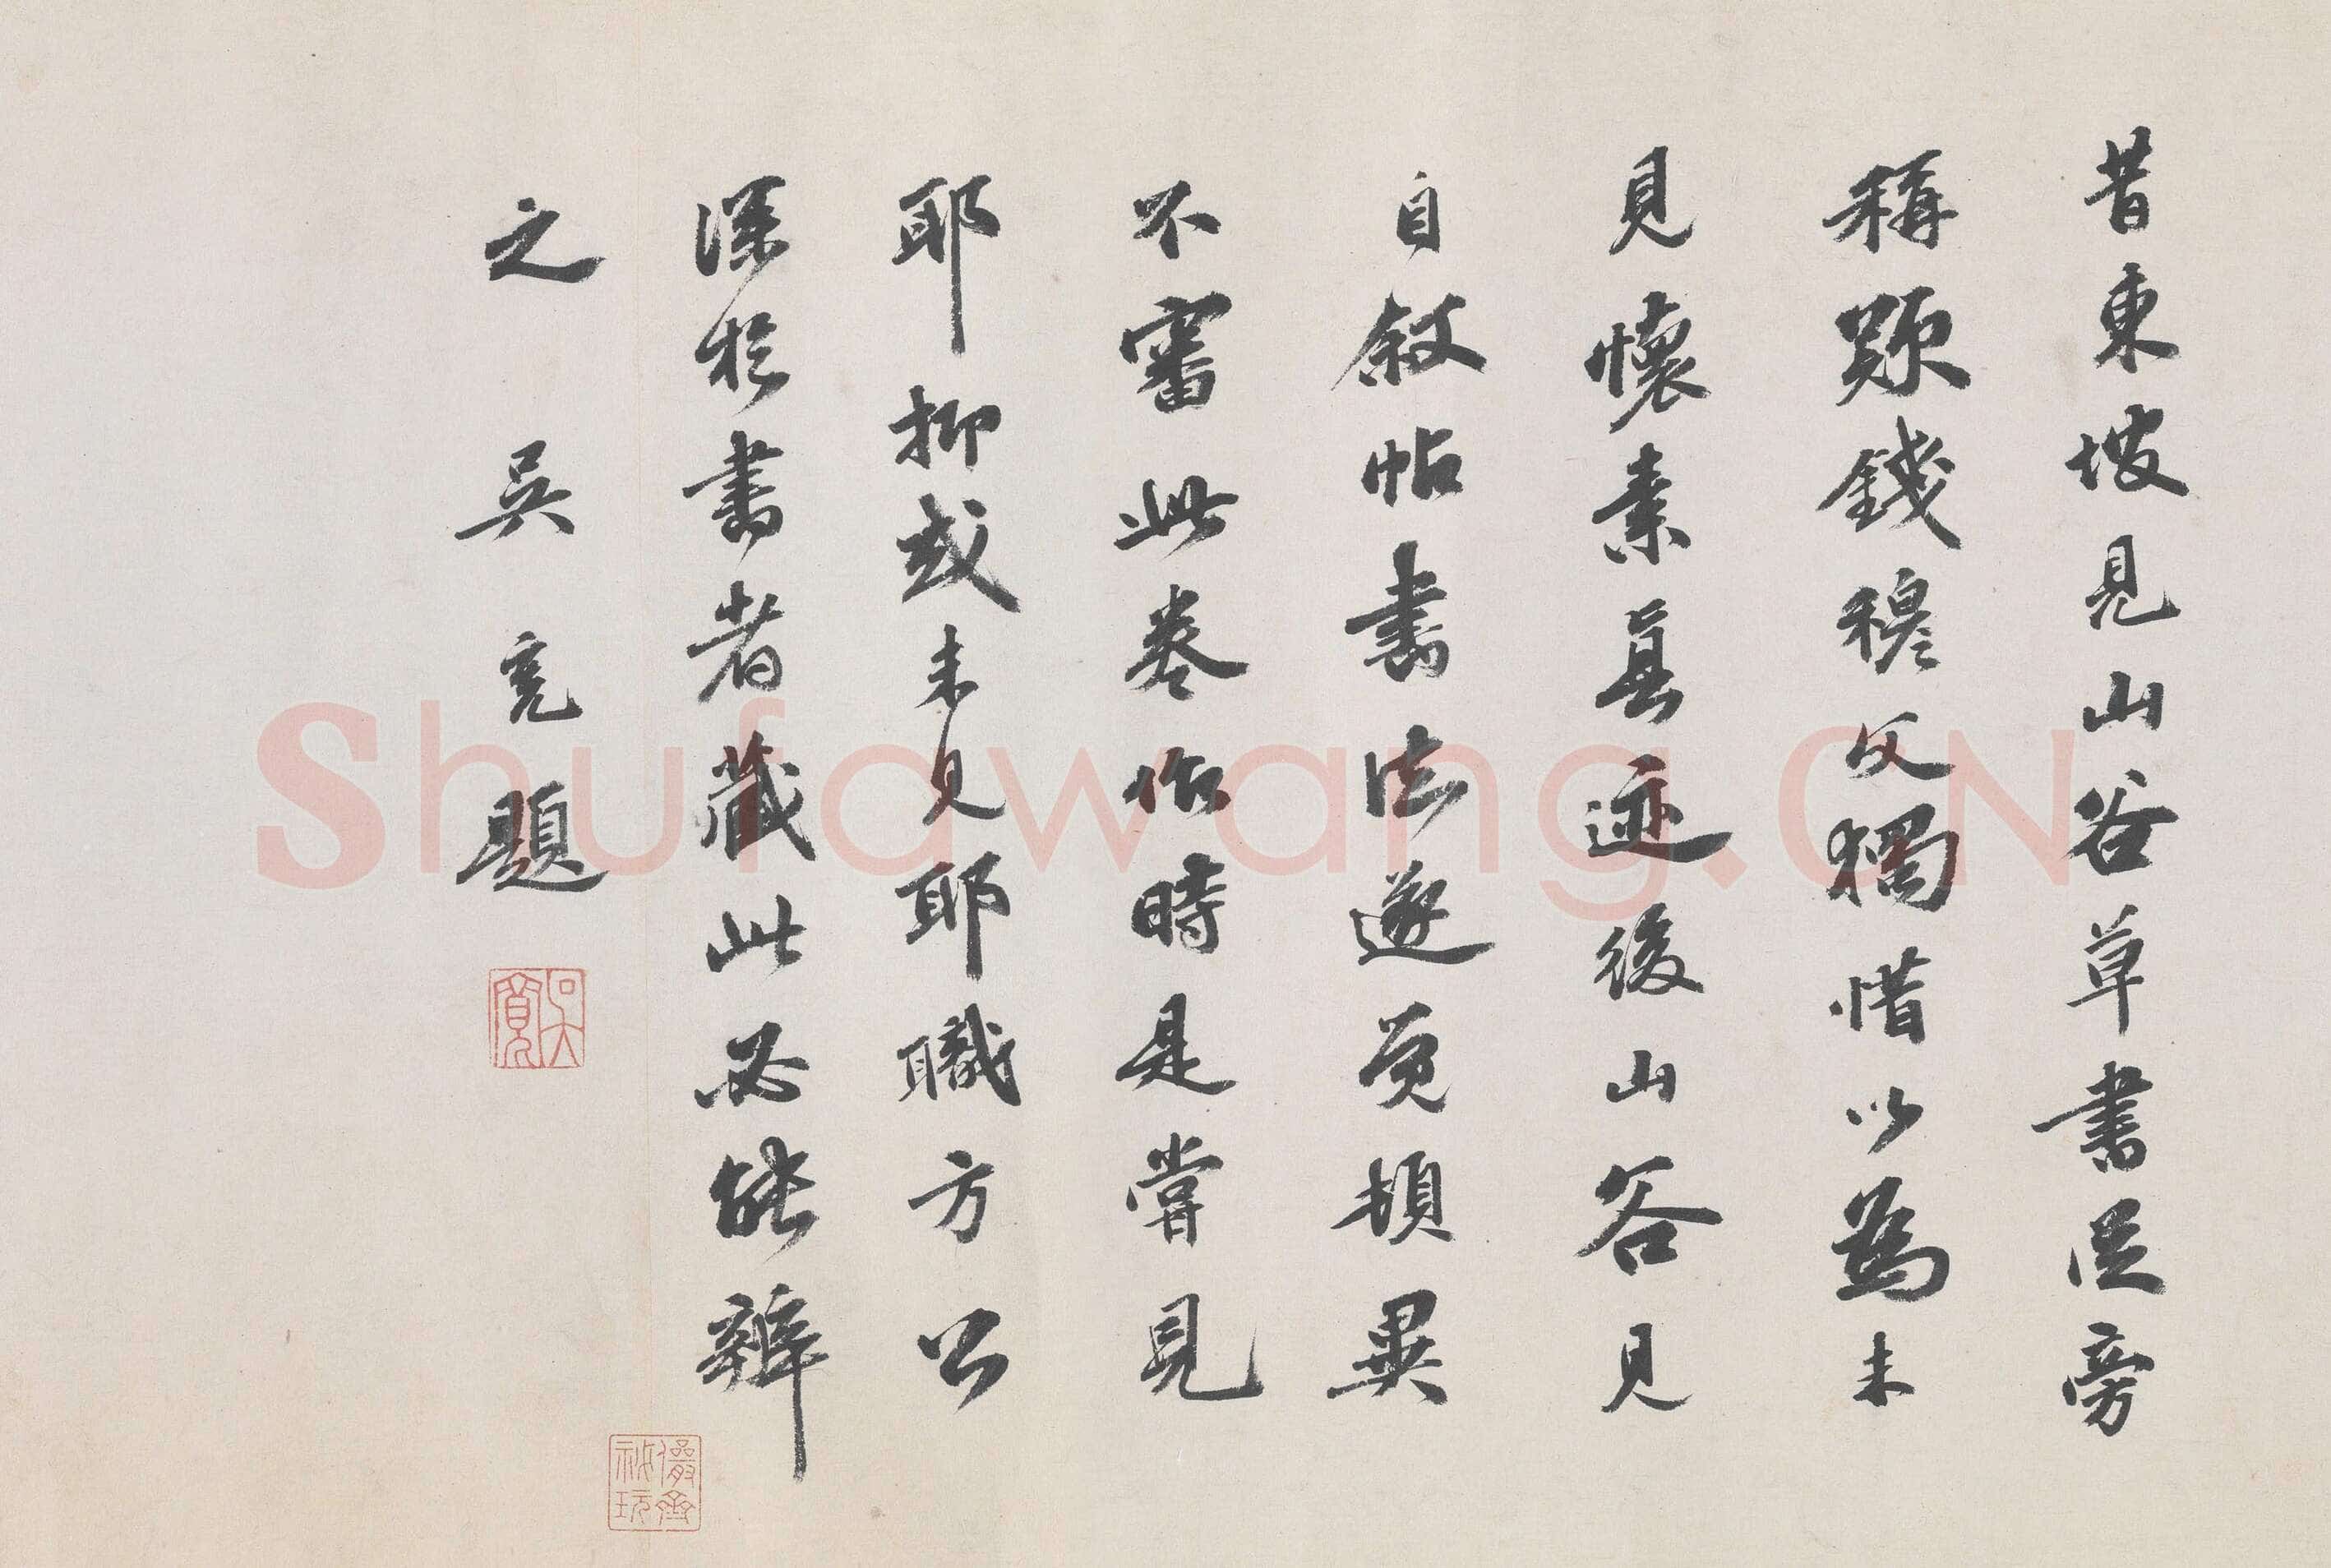 昔東坡見山谷草書從旁
稱歎錢穆父獨惜以為未
見懷素真迹後山谷見
自敘帖書法遂頓異
不審此卷作時是嘗見
耶抑或未見耶職方公
深於書者藏此必能辨
之 吳寬題
吳寬
儼齋秘玩
Shufawang.CN